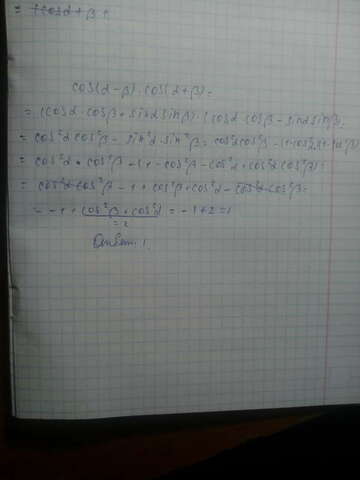 cos(α-β)·cos(α+β)=
=(cosα·cosβ+sinα sinβ)·(cosα·cosβ-sinα sinβ)
=cos²α cos²β-sin²α·sin²β=cos²α cos²β-
=cos²α·cos²β-1+cos²β-cos²α+cos²α cos²β)=
=cos²α·cos²β-1+cos²β+cos²α-cos²α·cos²β=
=-1+cos²β+cos²α=-1+2=1
=2
Ответ: 1.